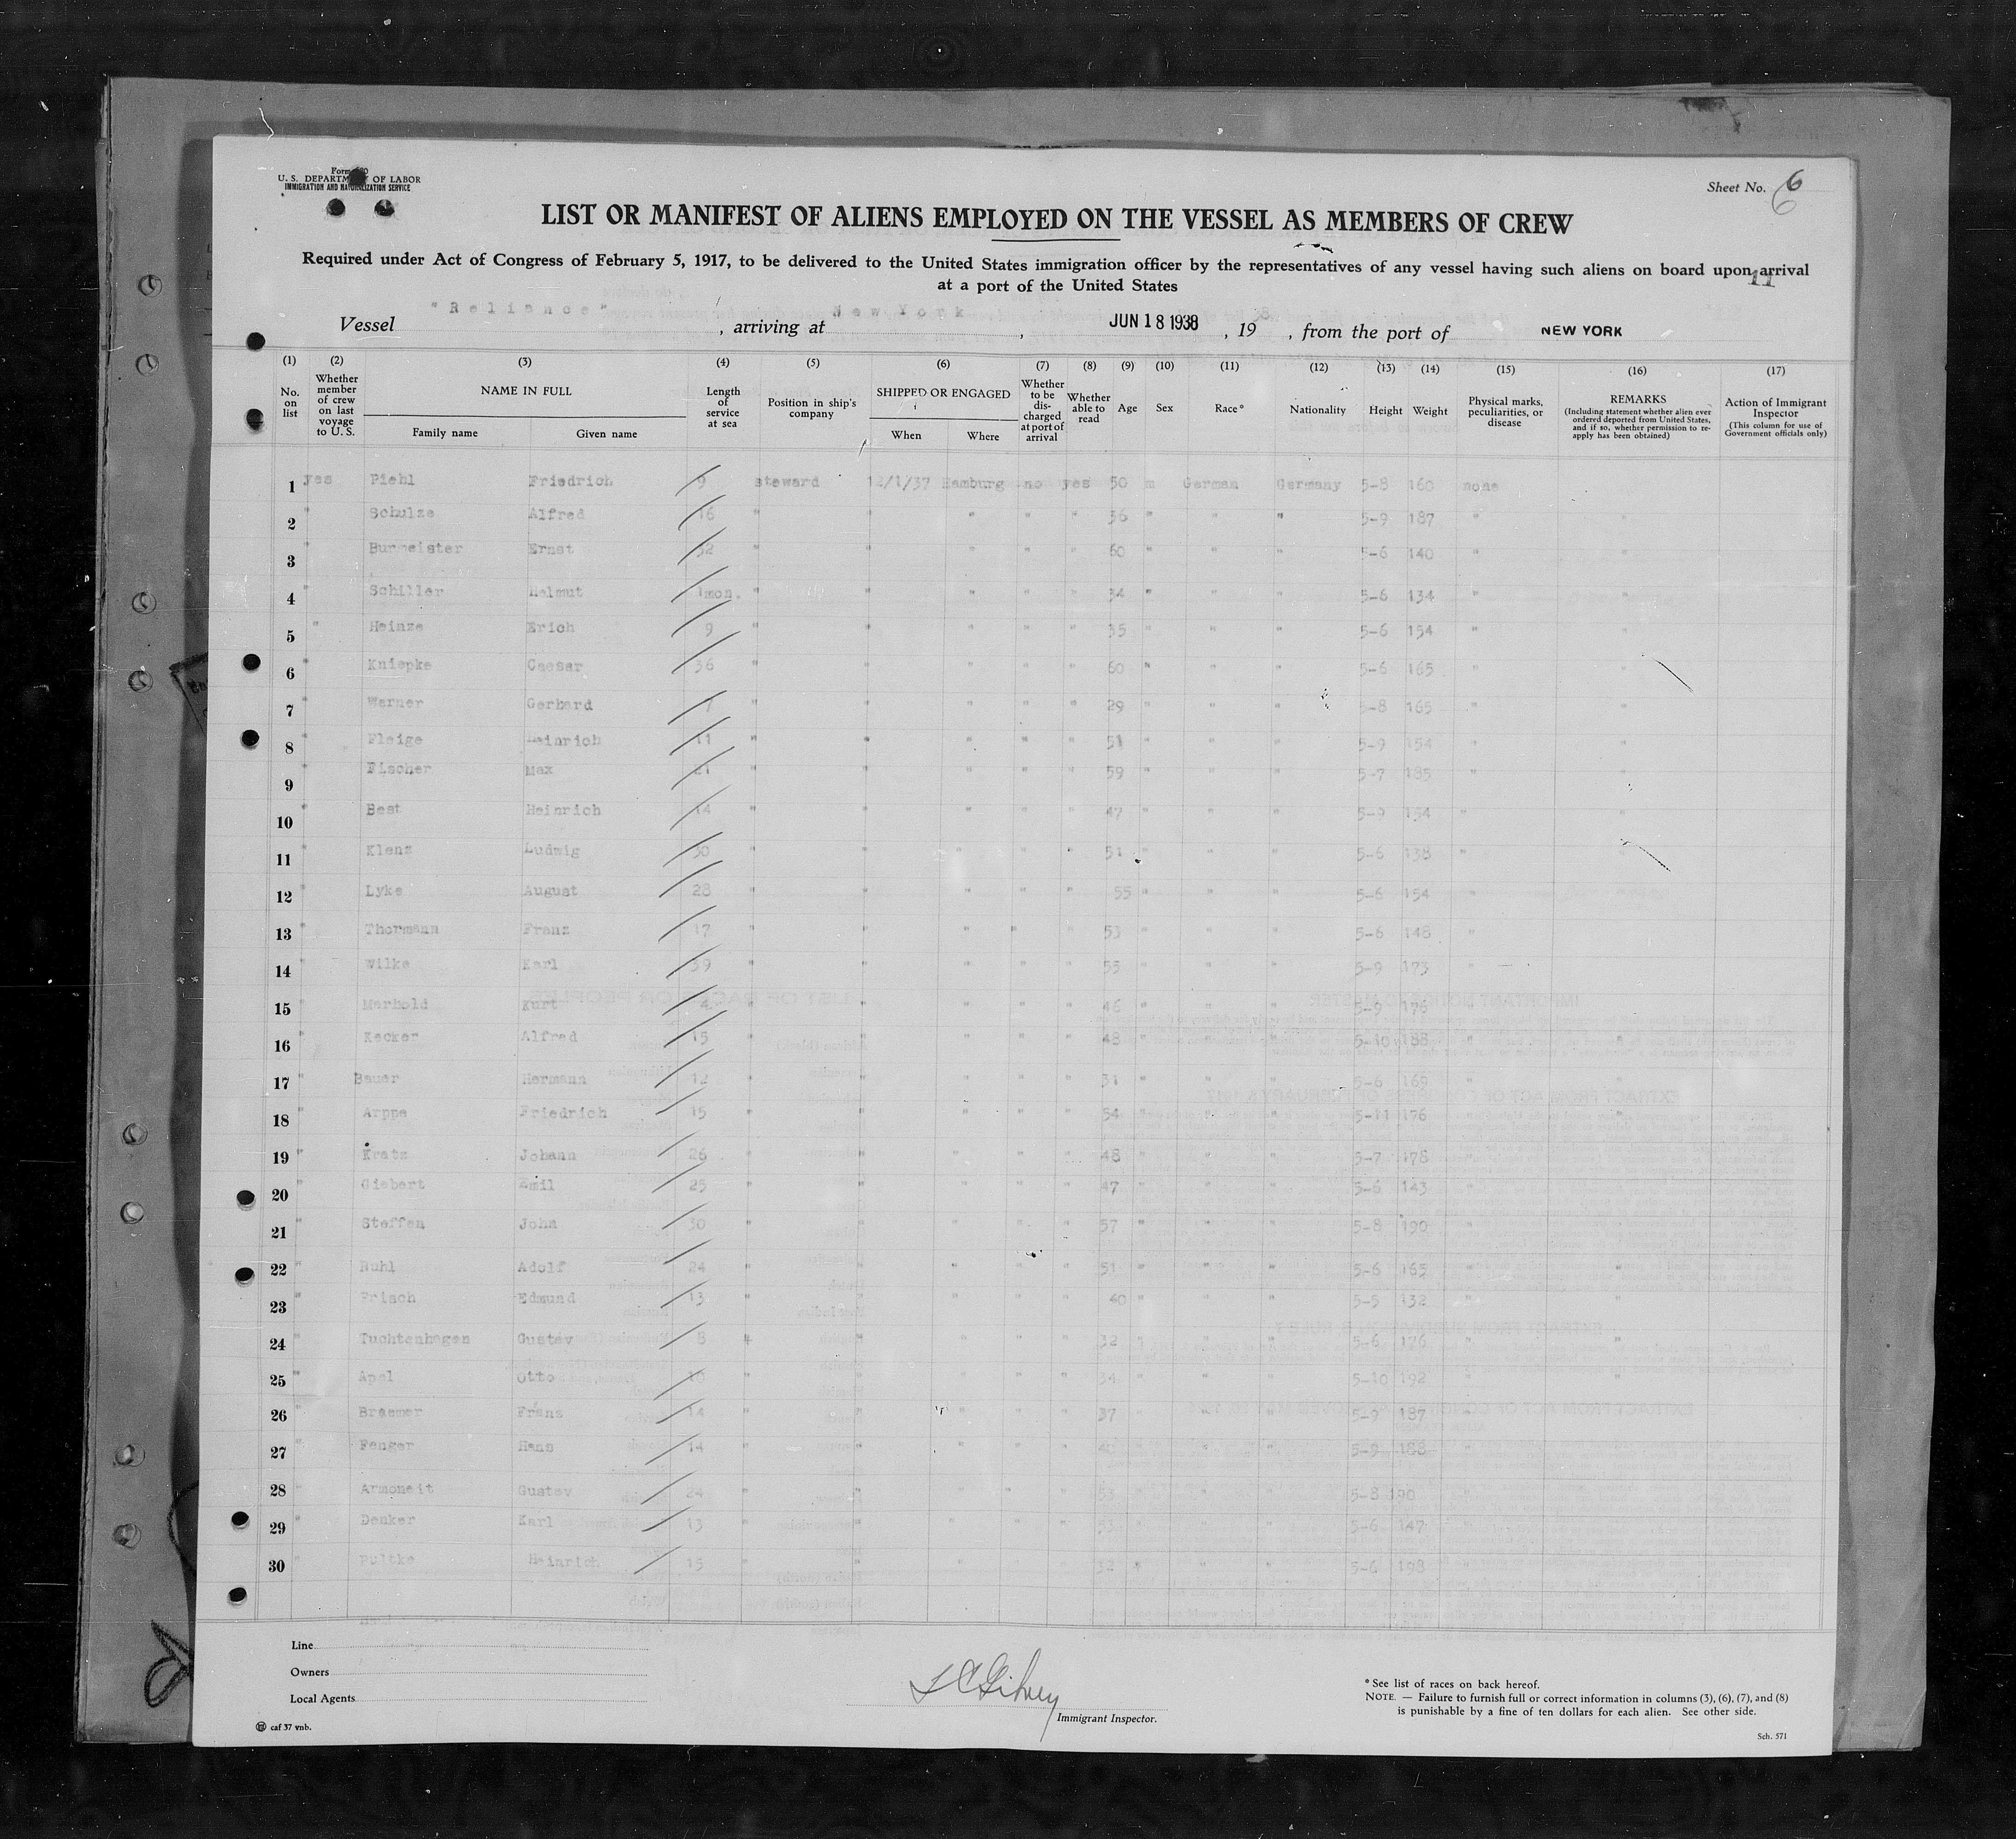 Form 680
U. S. DEPARTMENT OF LABOR
IMMIGRATION AND NATURALIZATION SERVICE
Sheet No. 6
LIST OR MANIFEST OF ALIENS EMPLOYED ON THE VESSEL AS MEMBERS OF CREW
Required under Act of Congress of February 5, 1917, to be delivered to the United States immigration officer by the representatives of any vessel having such aliens on board upon arrival
at a port of the United States
11
Vessel "Reliance", arriving at New York, JUN 18 1938, 1938, from the port of NEW YORK
(1) (2) (3) (4) (5) (6) (7) (8) (9) (10) (11) (12) (13) (14) (15) (16) (17)
No. on list
Whether member of crew on last voyage to U. S.
NAME IN FULL
Family name Given name
Length of service at sea
Position in ship's company
SHIPPED OR ENGAGED
When Where
Whether to be discharged at port of arrival
Whether able to read
Age
Sex
Race*
Nationality
Height
Weight
Physical marks, peculiarities, or disease
REMARKS
(Including statement whether alien ever ordered deported from United States, and if so, whether permission to reapply has been obtained)
Action of Immigrant Inspector
(This column for use of Government officials only)
1 yes Piehl Friedrich 9 steward 12/1/37 Hamburg no yes 50 m German Germany 5-8 160 none
2 " Schulze Alfred 16 " " " " " 36 " " " 5-9 187 " "
3 " Burmeister Ernst 32 " " " " " 60 " " " 5-6 140 " "
4 " Schiller Helmut 1mon. " " " " " 34 " " " 5-6 134 " "
5 " Heinze Erich 9 " " " " " 35 " " " 5-6 154 " "
6 " Kniepke Caesar 36 " " " " " 60 " " " 5-6 165 " "
7 " Werner Gerhard 7 " " " " " 29 " " " 5-8 165 " "
8 " Fleige Heinrich 11 " " " " " 51 " " " 5-9 154 " "
9 " Fischer Max 21 " " " " " 59 " " " 5-7 185 " "
10 " Best Heinrich 14 " " " " " 47 " " " 5-9 154 " "
11 " Klenz Ludwig 30 " " " " " 51 " " " 5-6 138 " "
12 " Lyke August 28 " " " " " 55 " " " 5-6 154 " "
13 " Thormann Franz 17 " " " " " 53 " " " 5-6 148 "
14 " Wilke Karl 39 " " " " " 55 " " " 5-9 173 "
15 " Marhold Kurt 4 " " " " " 46 " " " 5-9 176 "
16 " Kecker Alfred 15 " " " " " 48 " " " 5-10 188 " "
17 " Bauer Hermann 12 " " " " " 31 " " " 5-6 169 " "
18 " Arppe Friedrich 15 " " " " " 54 " " " 5-11 176 " "
19 " Kratz Johann 26 " " " " " 48 " " " 5-7 178 "
20 " Giebert Emil 25 " " " " " 47 " " " 5-6 143 "
21 " Steffen John 30 " " " " " 57 " " " 5-8 190 "
22 " Ruhl Adolf 24 " " " " " 51 " " " 5-6 165 " "
23 " Frisch Edmund 13 " " " " " 40 " " " 5-5 132 " "
24 " Tuchtenhagen Gustav 8 " " " " " 32 " " " 5-6 176 " "
25 " Apel Otto " " " " " 34 " " " 5-10 192 " "
26 " Braemer Franz 14 " " " " " 37 " " " 5-9 187 "
27 " Fenger Hans 14 " " " " " " " " 5-9 188
28 " Armoneit Gustav 24 " " " " " 53 " " " 5-8 190
29 " Denker Karl 13 " " " " " 53 " " " 5-6 147 "
30 " Pultke Heinrich 15 " " " " 32 " " " 5-6 198 "
Line
Owners
Local Agents
caf 37 vnb.
Immigrant Inspector.
* See list of races on back hereof.
NOTE. — Failure to furnish full or correct information in columns (3), (6), (7), and (8)
is punishable by a fine of ten dollars for each alien. See other side.
Sch. 571